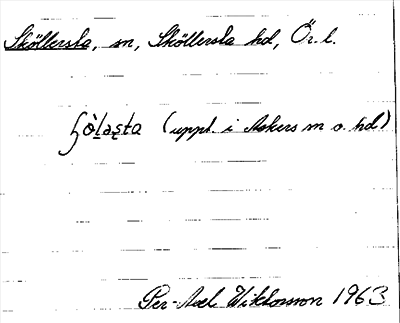 Sköllersta, sn, Sköllersta hd, Ör. l.
ʃò̀lǝșta (uppt. i Askers sn o. hd)
Per-Axel Wiktorsson 1963